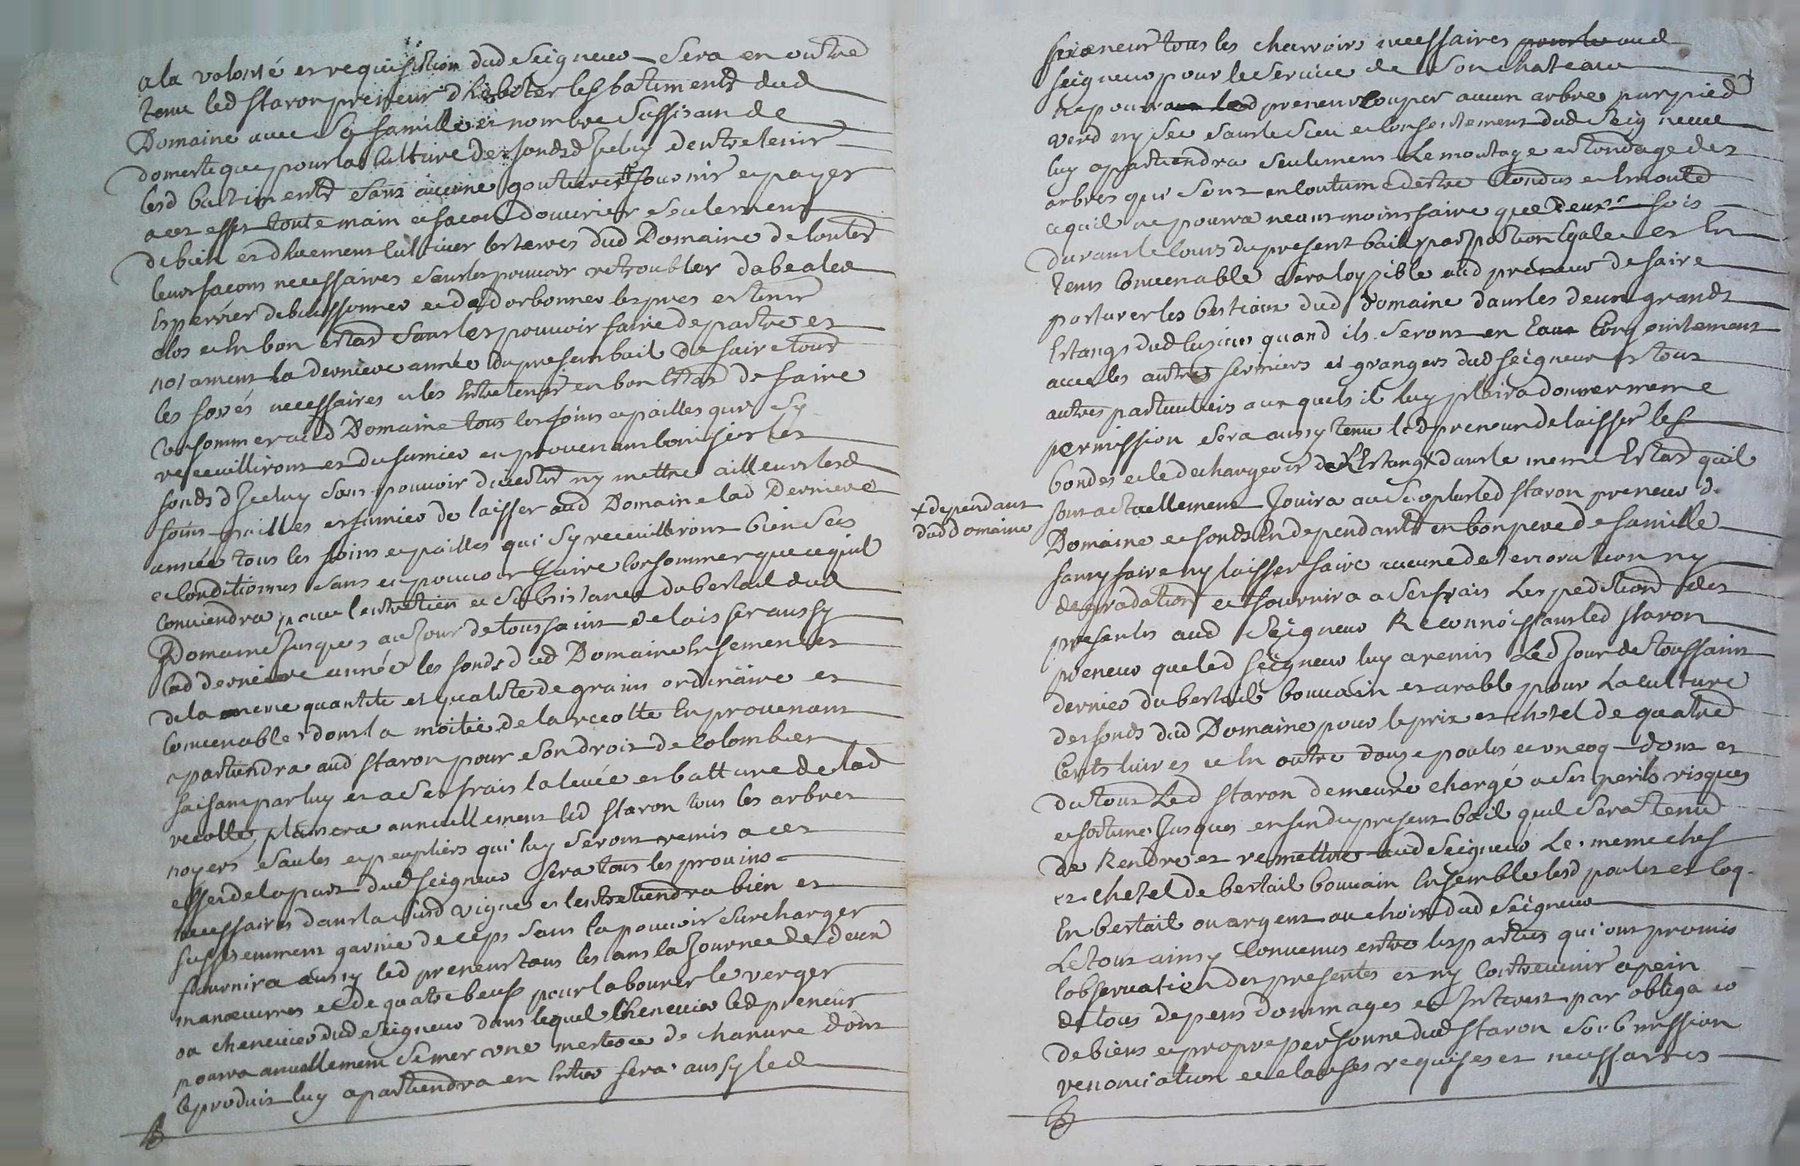 a la volonté et requisition dud Seigneur Sera en outre
tenu led Staron preneur d'habiter les batiments dud
Domaine avec Sa famille et nombre Suffisant de
domestique pour la Culture des fonds d'Iceluy d'entretenir
lesd batiments Sans aucune goutiere et fournir et payer
a cet effet toute main et facon d'ouvrier Seulement
de bien et d'huement Cultiver les terres dud Domaine de toutes
leurs facons necessaires Sans les pouvoir retroubler dableder
Esperrier debuissonner et dedorbonner les pres et tenir
clos et En bon Estat Sans les pouvoir faire depaitre et
notament la derniere année du present bail de faire tous
les fossés necessaires et les Entretenir en bon Estat de faire
Consommer aud Domaine tous les foins et pailles qui Sy
receuilliront et du fumier en provenant bonifier les
fonds d'Iceluy Sans pouvoir divertir ny mettre ailleurs lesd
foins pailles et fumier de laisser aud Domaine lad Derniere
année tous les foins et pailles qui Sy receuilliront bien Secs
et Conditionnés Sans en pouvoir faire Consommer que ce quil
Conviendra pour l'entretien et Subsistance du bestail dud
Domaine Jusques au Jour de toussaint de laisser aussy
lad derniere année les fonds dud Domaine Ensemencés
de la meme quantite et qualité de grains ordinaire et
Convenable dont la moitié de la recolte En provenant
apartiendra aud Staron pour Son droit de Colombier
faisant par luy et a Ses frais la levée et batture de lad
recolte, plantera annuellement led Staron tous les arbres
noyers Saules et peupliers qui luy Seront remis a cet
effet de la part dud Seigneur fera tous les provins
necessaires dans la Susd vigne et l'entretiendra bien et
Suffisemment garnie de Ceps Sans la pouvoir Surcharger
fournira aussy led preneur tous les ans la Journée de deux
manoeuvres et de quatre beufs pour labourer le verger
ou cheneviere dud Seigneur dans lequel Cheneviere led preneur
pourra annuellement Semer une de chanvre dont
le produit luy apartiendra en Entier fera aussy led
preneur tous les charrois necessaires pour le aud
Seigneur pour le Service de Son chateau
Ne pourra led preneur Couper aucun arbre par pied
verd ny Sec Sans le Sceu et Consentement dud Seigneur
luy apartiendra Seulement l'emontage et tondage des
arbres qui Sont en Coutume d'estre tondus et Emontés
ce quil ne pourra neanmoins faire que deux fois
durant le Cours du present bail par portion Egale et En
tems Convenable Sera loysible aud preneur de faire
paturer les bestiaux dud Domaine dans les deux grands
Estangs dud quand ils Seront en Eau Conjointement
avec les autres fermiers et grangers dud Seigneur et tous
autres particuliers auxquels il luy plaira donner meme
permission Sera aussy tenu led preneur de laisser les
bondes et le dechargeoir de l'Estang dans le meme Estat quil
+ dependant
dud domaine
Sont actuellement Jouira au Surplus led Staron preneur d.
Domaine et fonds En dependants en bon pere de famille
Sans y faire ny laisser faire aucune deterioration ny
degradation et fournira a Ses frais L'expedition des
presentes aud Seigneur Reconnoissant led Staron
preneur que led Seigneur luy a remis Led Jour de toussaint
dernier du bestail bouvain et arable pour La culture
des fonds dud Domaine pour le prix et chetel de quatre
Cents livres et En outre douze poules et un coq dont et
du tout Led Staron demeure chargé a Ses perils risques
et fortune Jusques en fin du present bail quil Sera tenu
de Rendre et remettre aud Seigneur Le meme chef
et chetel de bestail bouvain Ensemble lesd poules et Coq
En bestail ou argent au choix dud Seigneur
Le tout ainsy Convenus entre les parties qui ont promis
l'observation des presentes et ny Contrevenir a peine
de tous depens dommages et Interest par obliga on
de biens et propre personne dud Staron Soubmission
renonciation et clauses requises et necessaires